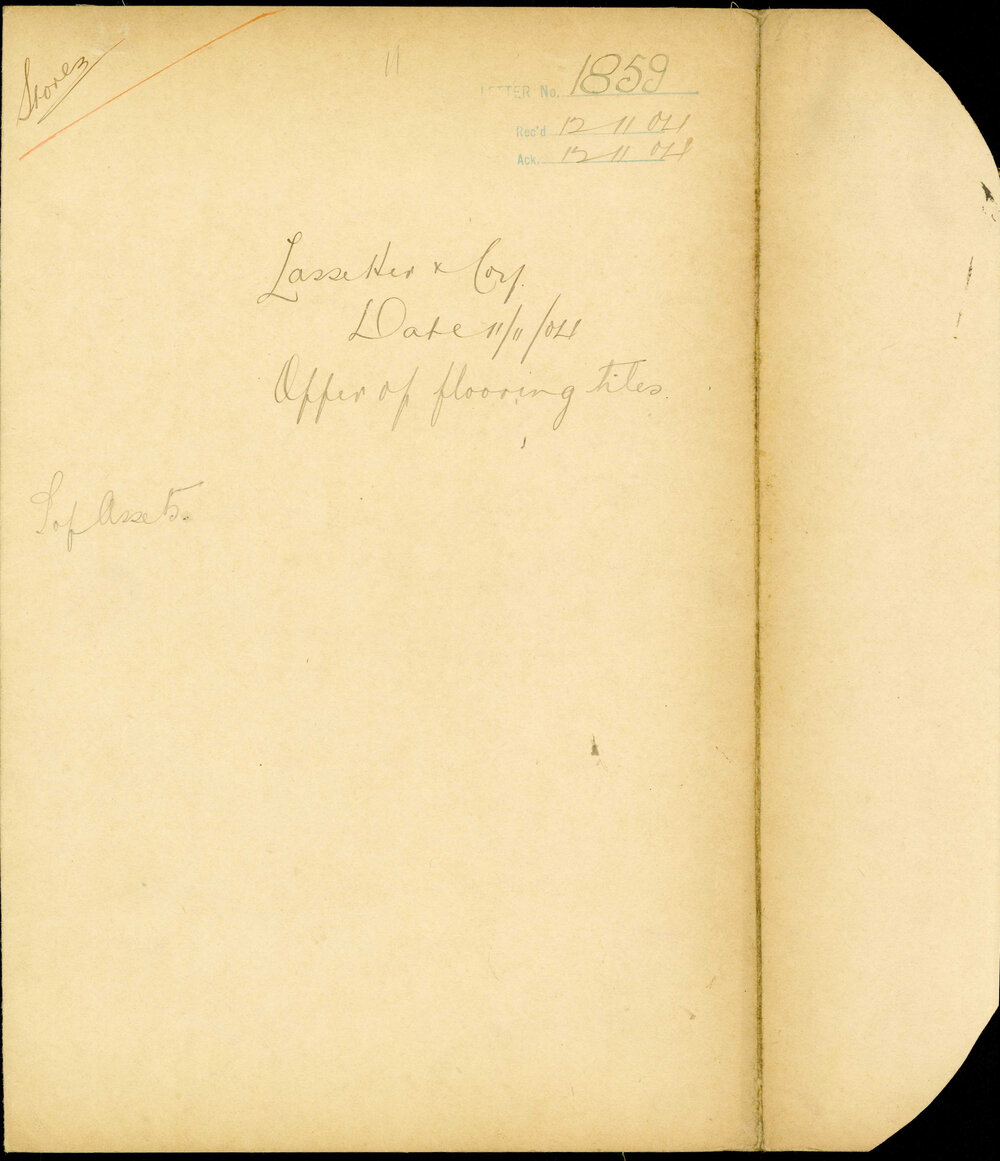 Stores
11
LETTER No. 1859
Rec'd 12 11 04
Ack. 12 11 04
Lassetter & Coy.
Date 11/11/04
Offer of flooring tiles.
Assets.